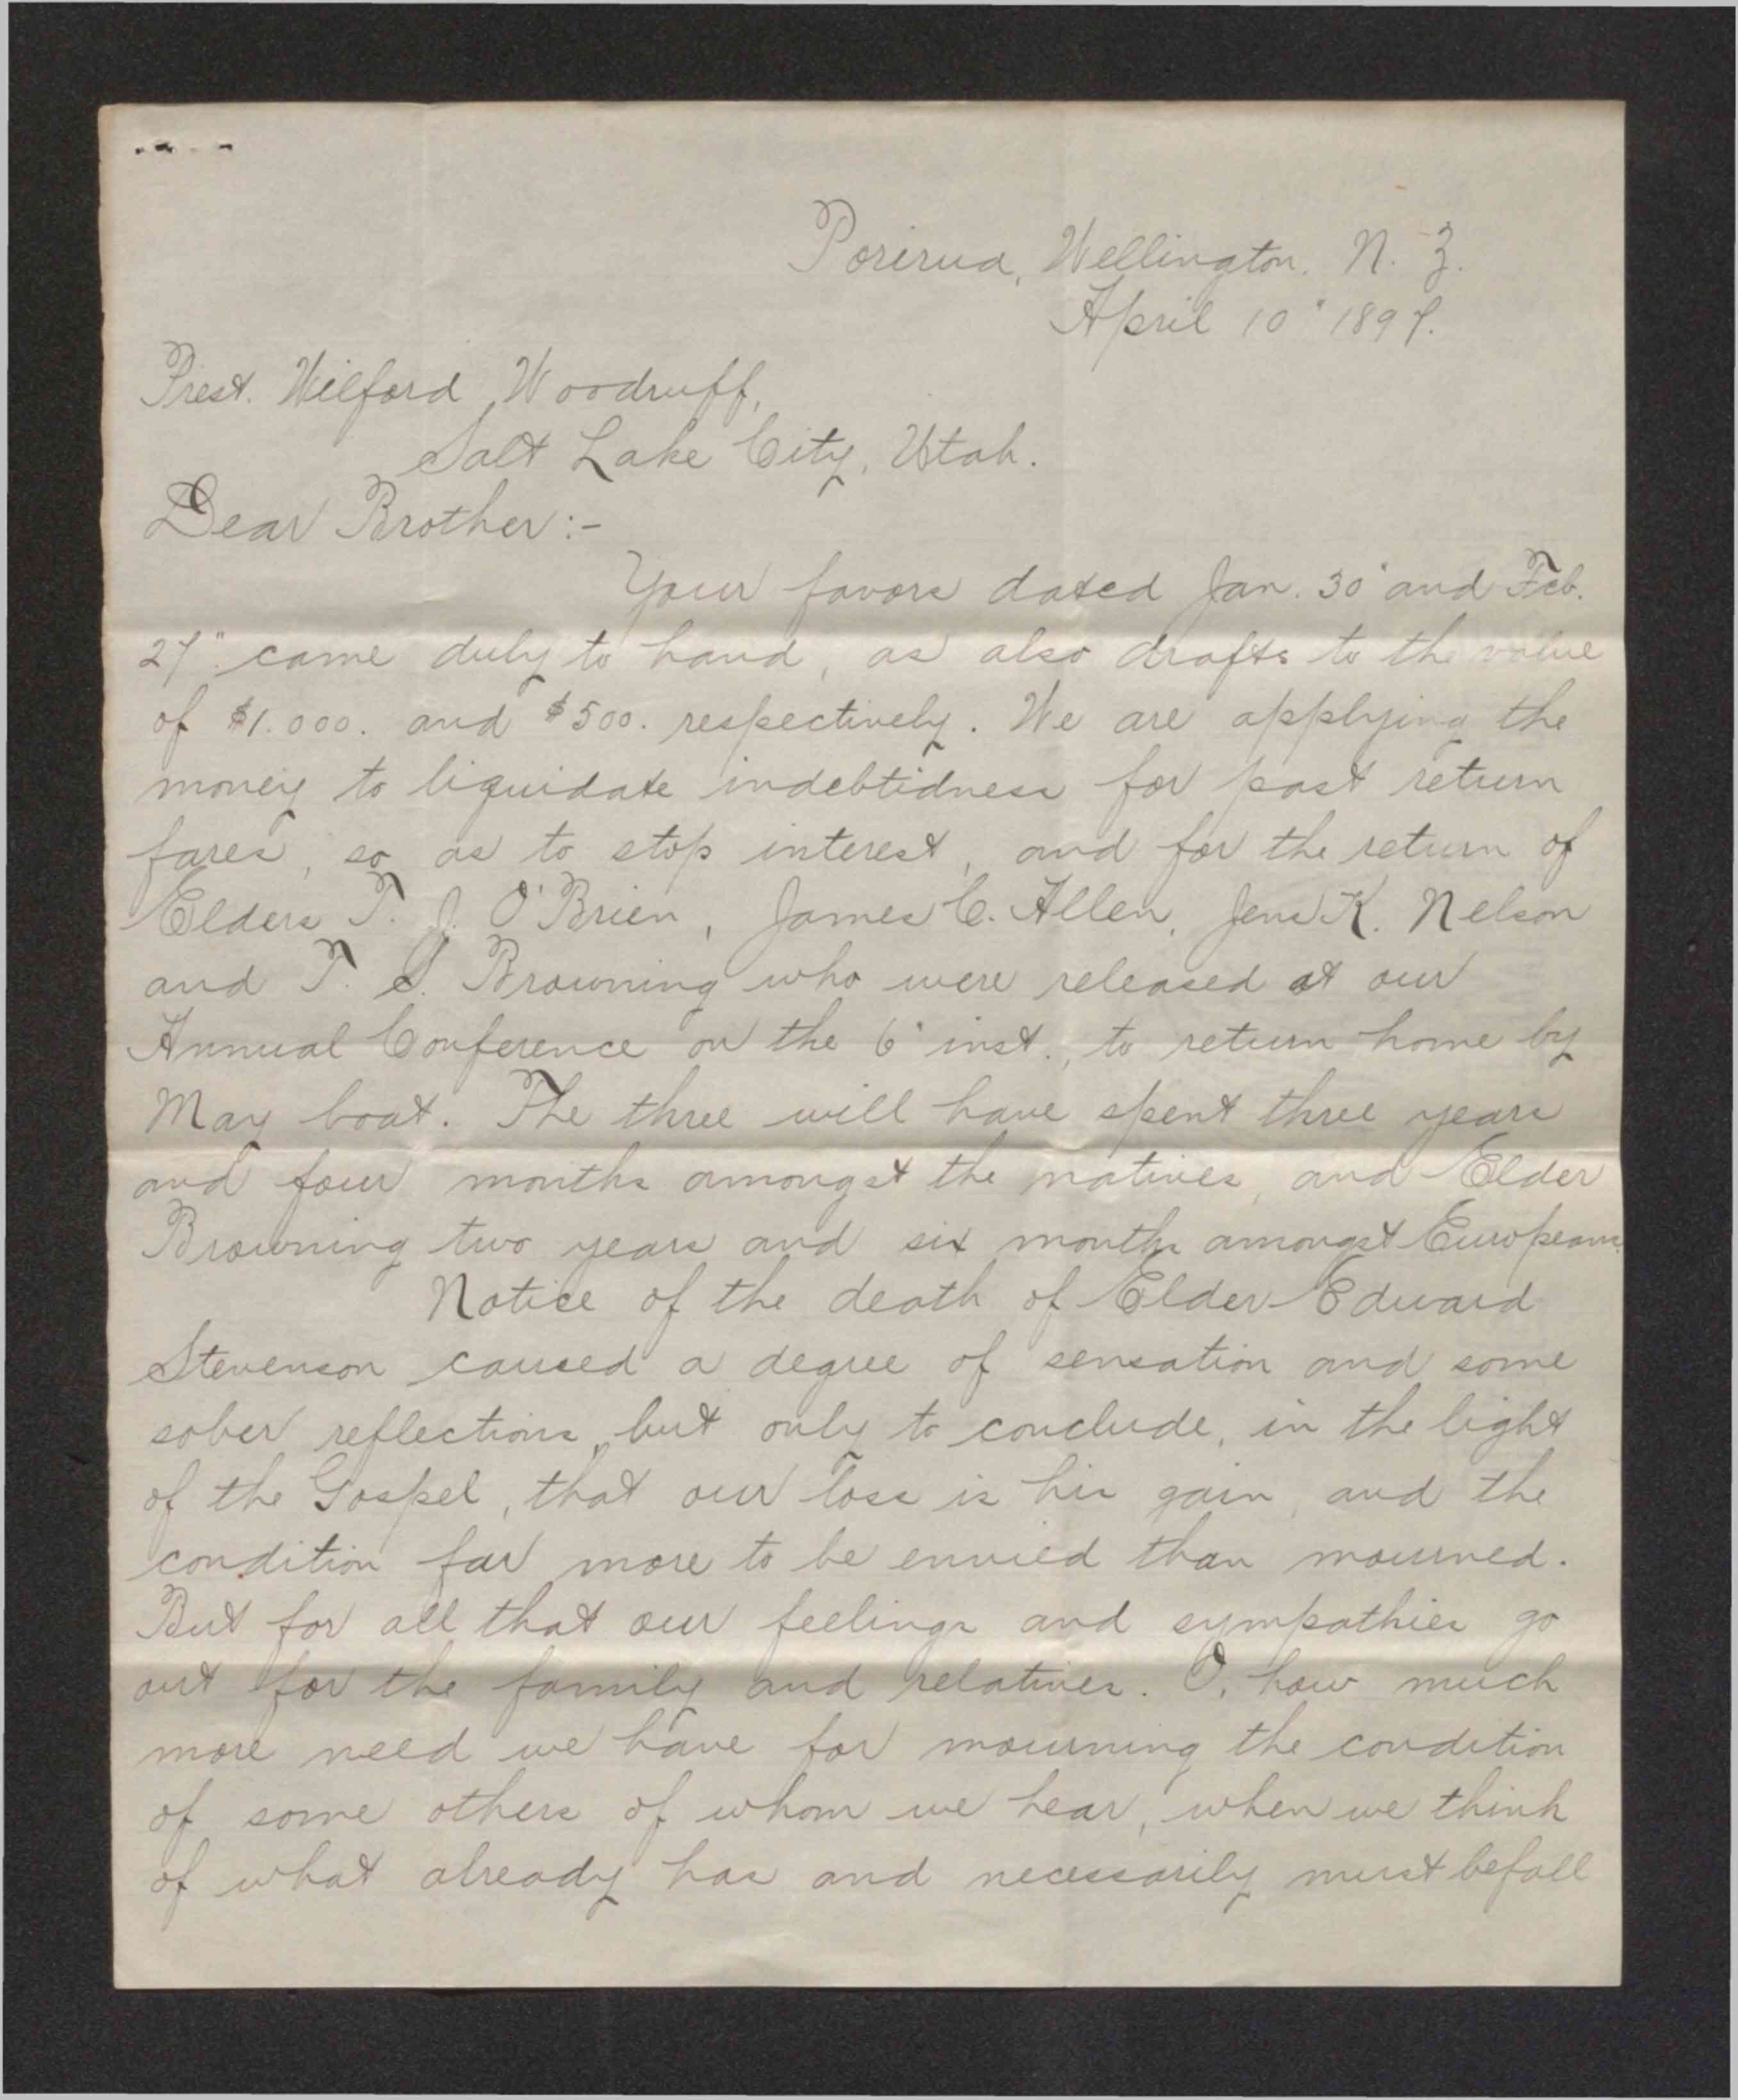 Porirua, Wellington. N. Z.
April 10" 1897.
Prest. Wilford Woodruff,
Salt Lake City, Utah.
Dear Brother:-
Your favors dated Jan. 30" and Feb.
27" came duly to hand, as also drafts to the value
of $1.000. and $500. respectively. We are applying the
money to liquidate indebtidness for past return
fares, so as to stop interest, and for the return of
Elders T. J. O'Brien, James C. Allen, Jens K. Nelson
and T. S. Browning who were released at our
Annual Conference on the 6" inst., to return home by
May boat. The three will have spent three years
and four months amongst the natives, and Elder
Browning two years and six months amongst Europeans.
Notice of the death of Elder Edward
Stevenson caused a degree of sensation and some
sober reflections, but only to conclude, in the light
of the Gospel, that our loss is his gain, and the
condition far more to be envied than mourned.
But for all that our feelings and sympathies go
out for the family and relatives. O, how much
more need we have for mourning the condition
of some others of whom we hear, when we think
of what already has and necessarily must befall